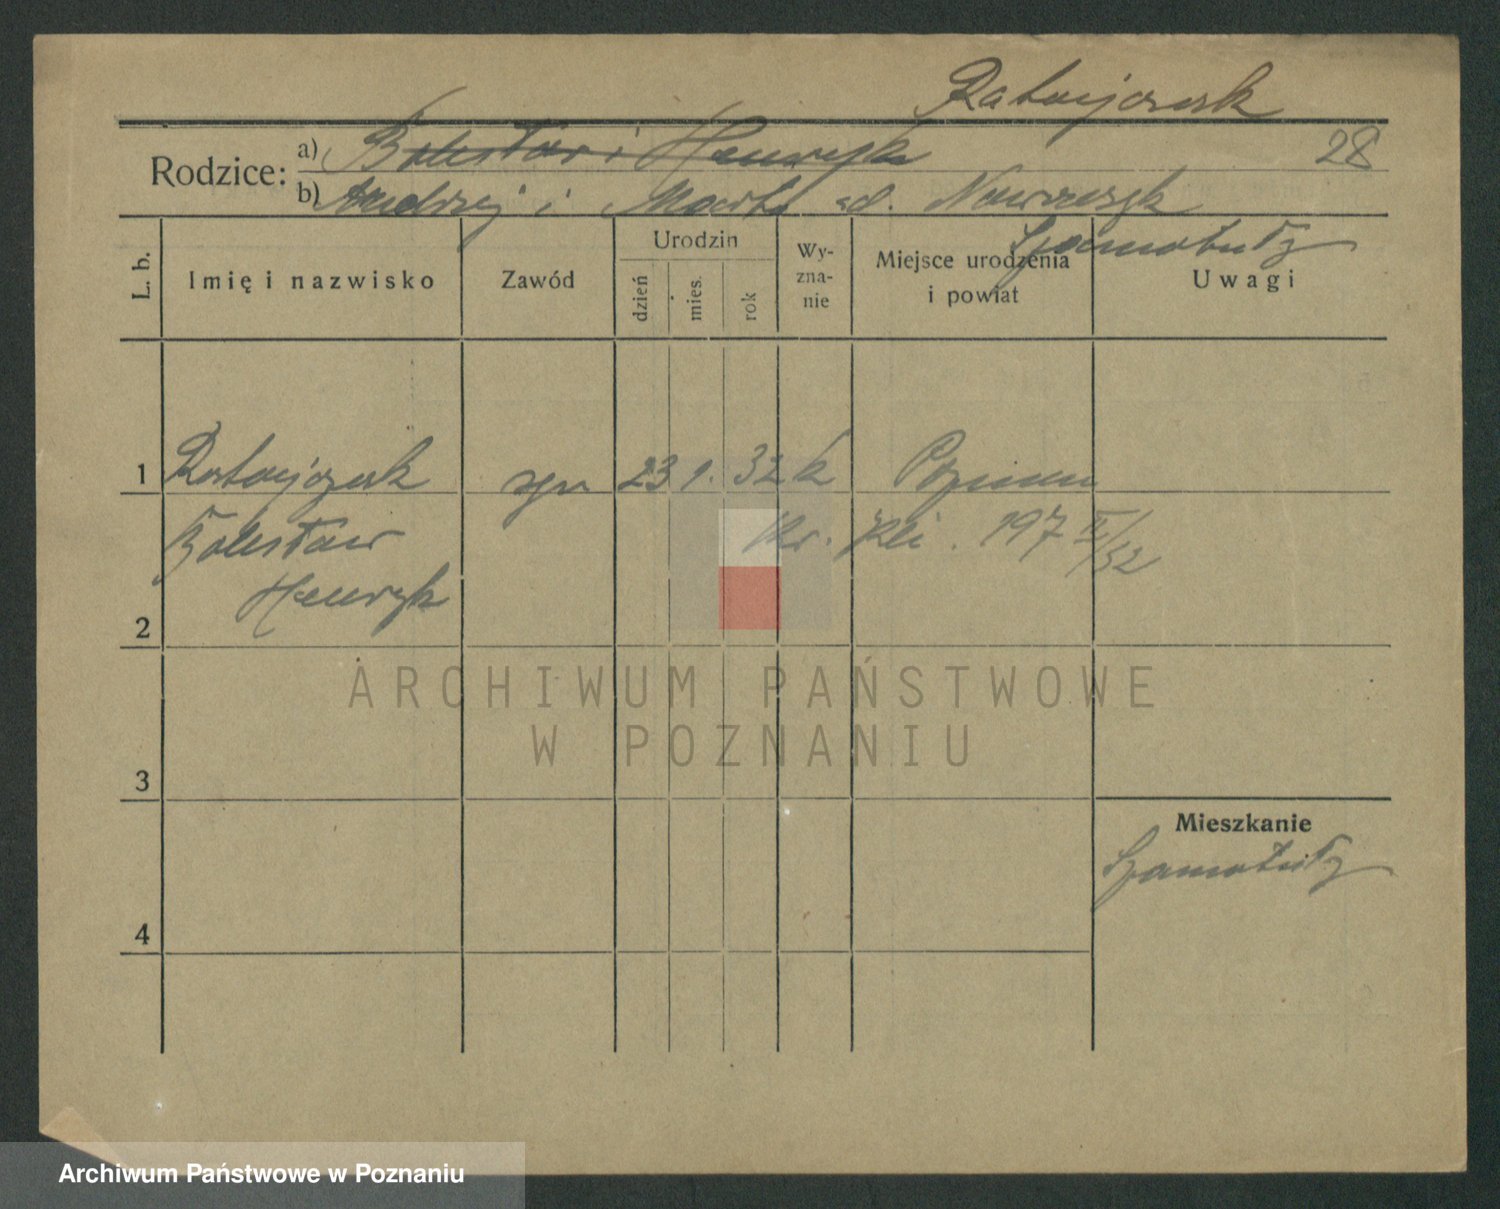 Ratajczak
Rodzice: a) Bolesław i Henryk
28
b) Andrzej i Marta
Szamotuły
L. b.
Imię i nazwisko
Zawód
Urodzin
dzień
mies.
rok
Wy-
zna-
nie
Miejsce urodzenia
i powiat
Uwagi
1 Ratajczak 23 1. 32 k Poznań
Bolesław
197 II/32
Henryk
2
ARCHIWUM PAŃSTWOWE
W POZNANIU
3
Mieszkanie
Szamotuły
4
Archiwum Państwowe w Poznaniu